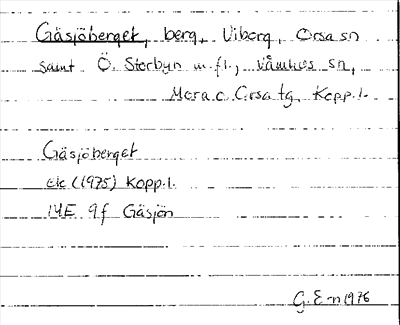 Gäsjöberget, berg, Viborg, Orsa sn
samt Ö. Storbyn m.fl., Våmhus sn,
Mora o. Orsa tg, Kopp.l.
Gäsjöberget
ek (1975) Kopp.l.
14E 9f Gäsjön
G.E-n 1976